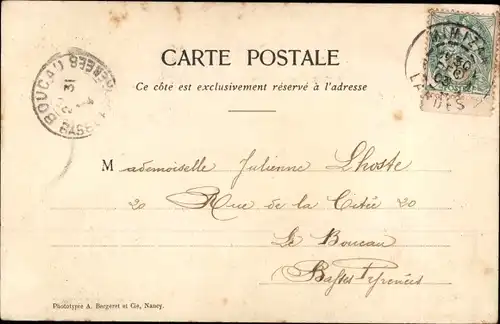 CARTE POSTALE
Ce côté est exclusivement réservé à l'adresse
BOUCAU
31
BASSES PYRENEES
MIMIZAN
30
03
LANDES
Mademoiselle Julienne Lhoste
20 Rue de la Citée 20
Le Boucau
Basses Pyrénées
Phototypie A. Bergeret et Cie, Nancy.